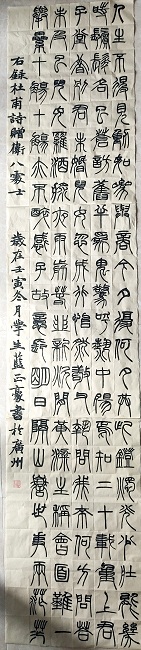 人生不相見動如參與商今夕復何夕共此鐙燭光少壯能幾
時鬢髮各已蒼訪舊半為鬼驚呼熱中腸焉知二十載重上君
子堂昔別君未婚兒女忽成行怡然敬父執問我來何方問答
未及已兒女羅酒漿夜雨翦春韭新炊間黃粱主稱會面難一
舉累十觴十觴亦不醉感子故意長明日隔山嶽世事兩茫茫
右錄杜甫詩贈衛八處士 歲在壬寅冬月學生藍正豪書於廣州